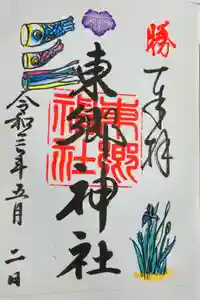 勝
奉拝
東郷神社
東郷
神社
令和三年五月二日